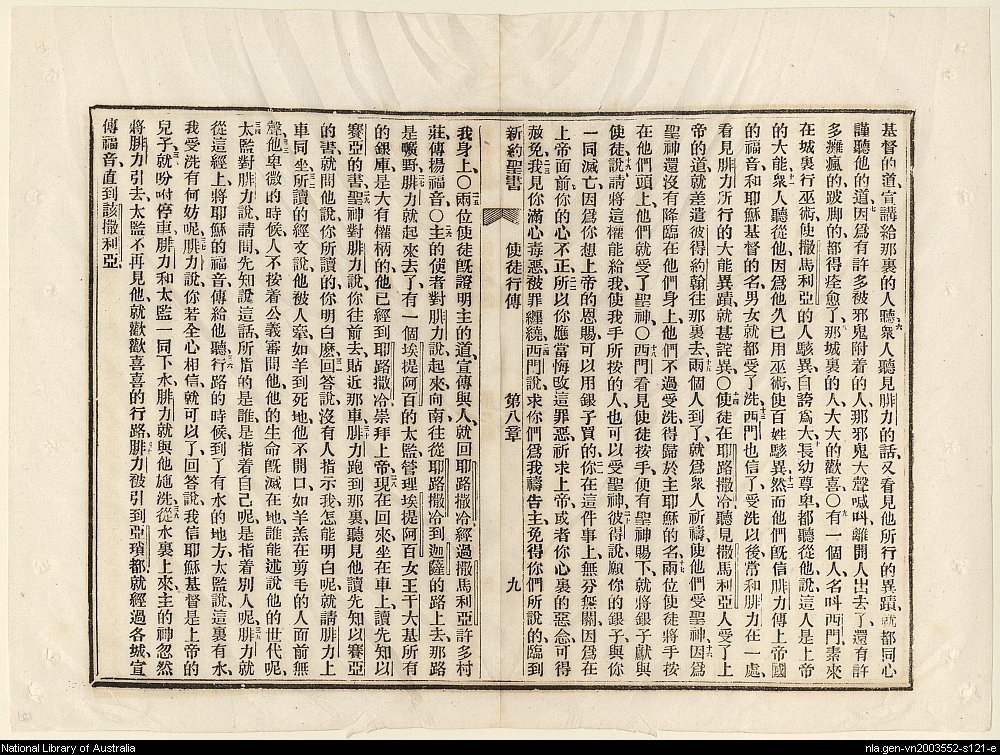 基督的道、宣講給那裏的人聽、衆人聽見腓力的話、又看見他所行的異蹟、就都同心
謹聽他的道、因爲有許多被邪鬼附着的人、那邪鬼大聲喊叫、離開人出去了、還有許
多癱瘋的、跛脚的、都得痊愈了、那城裏的人大大的歡喜○有一個人名叫西門、素來
在城裏行巫術、使撒馬利亞的人駭異、自誇爲大、長幼尊卑都聽從他、說、這人是上帝
的大能、衆人聽從他、因爲他久已用巫術使百姓駭異、然而他們旣信腓力傳上帝國
的福音、和耶穌基督的名、男女就都受了洗、西門也信了、受洗以後、常和腓力在一處、
看見腓力所行的大能異蹟、就甚詫異○使徒在耶路撒冷聽見撒馬利亞人受了上
帝的道、就差遣彼得約翰往那裏去、兩個人到了、就爲衆人祈禱、使他們受聖神、因爲
聖神還沒有降臨在他們身上、他們不過受洗、得歸於主耶穌的名、兩位使徒將手按
在他們頭上、他們就受了聖神○西門看見使徒按手、便有聖神賜下、就將銀子獻與
使徒說、請將這權能給我、使我手所按的人、也可以受聖神、彼得說、願你的銀子與你
一同滅亡、因爲你想上帝的恩賜、可以用銀子買的、你在這件事上無分無關、因爲在
上帝面前、你的心不正、所以你應當悔改這罪惡、祈求上帝、或者你心裏的惡念、可得
赦免、我見你滿心毒惡、被罪纏繞、西門說、求你們爲我禱吿主、免得你們所說的、臨到
新約聖書 使徒行傳 第八章 九
我身上○兩位使徒旣證明主的道、宣傳與人、就回耶路撒冷、經過撒馬利亞許多村
莊、傳揚福音○主的使者對腓力說、起來向南往從耶路撒冷到迦薩的路上去、那路
是曠野、腓力就起來去了、有一個埃提阿百的太監、管理埃提阿百女王干大基所有
的銀庫、是大有權柄的、他已經到耶路撒冷崇拜上帝、現在回來、坐在車上讀先知以
賽亞的書、聖神對腓力說、你往前去、貼近那車、腓力跑到那裏、聽見他讀先知以賽亞
的書、就問他說、你所讀的、你明白麼、回答說、沒有人指示我、怎能明白呢、就請腓力上
車同坐、所讀的經文說、他被人牽、如羊到死地、他不開口、如羊羔在剪毛的人面前無
聲、他卑微的時候、人不按着公義審問他、他的生命旣滅在地、誰能述說他的世代呢、
太監對腓力說、請問先知說這話、所指的是誰、是指着自己呢、是指着別人呢、腓力就
從這經上、將耶穌的福音傳給他聽、行路的時候、到了有水的地方、太監說、這裏有水、
我受洗有何妨呢、腓力說、你若全心相信、就可以了、回答說、我信耶穌基督是上帝的
兒子、就吩咐停車、腓力和太監一同下水、腓力就與他施洗、從水裏上來、主的神忽然
將腓力引去、太監不再見他、就歡歡喜喜的行路、腓力被引到亞瑣都、就經過各城、宣
傳福音、直到該撒利亞、
National Library of Australia
nla.gen-vn2003552-s121-e